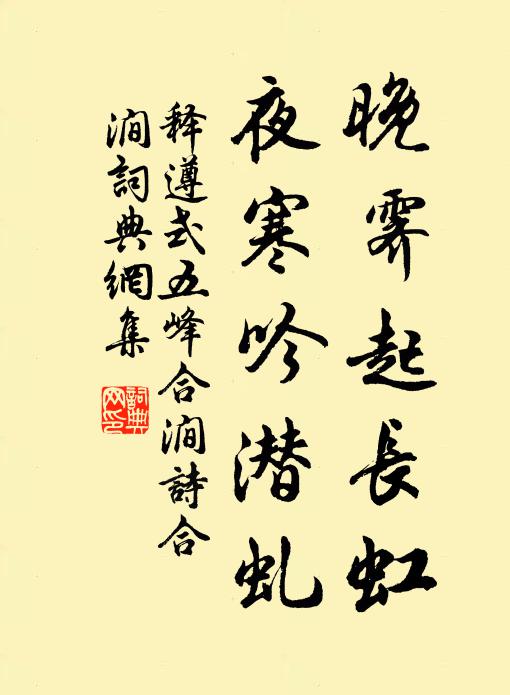 晚霽起長虹
夜寒吟潜虬
释遵式五峰合澗詩合
澗詞典網集
詞典网印